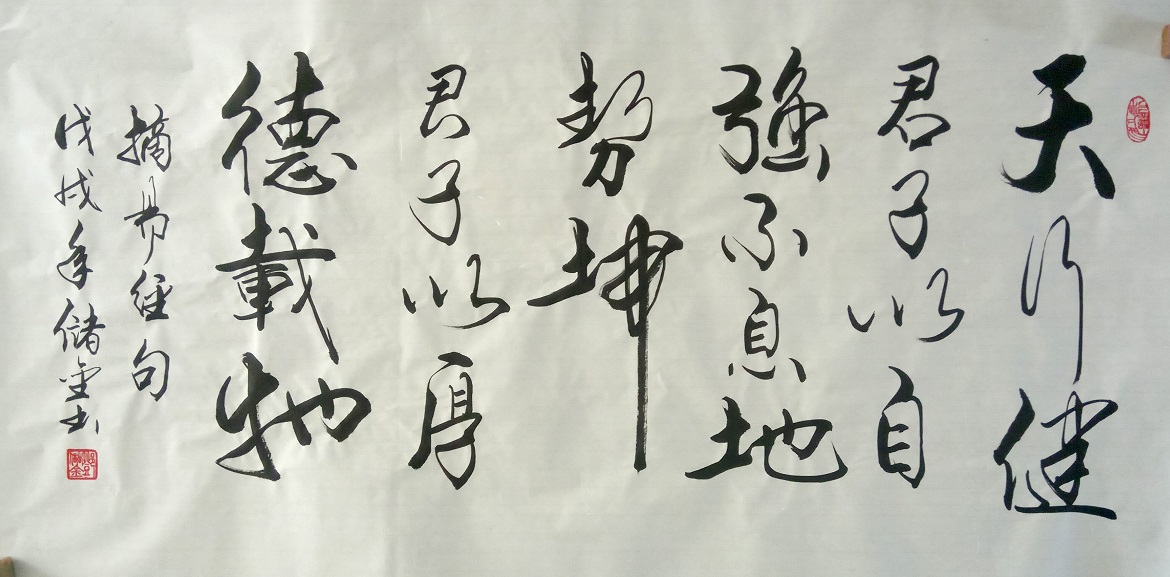 天行健
君子以自
強不息地
勢坤
君子以厚
德載物
摘易經句
戊戌年儲金书